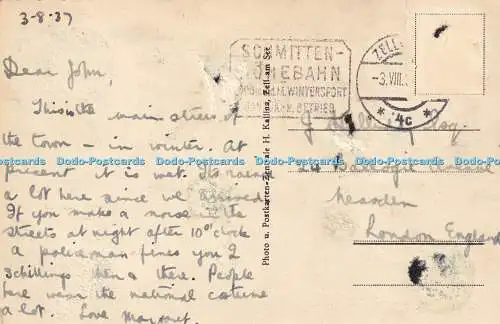 3-8-37
Dear John,
This is the main street of
the town – in winter. At
present it is wet. Its rained
a lot here since we arrived.
If you make a noise in the
streets at night after 10 o'clock
a policeman fines you 2
Schillings then & there. People
here wear the national costume
a lot. Love Margaret.
SCHMITTEN-
HÖHEBAHN
WINTERSPORT
BETRIEB
ZELL
-3.VIII.
* 4c *
Photo u. Postkarten-Zentrale H. Kallina, Zell-am See
J Esq.
24
Neasden
London England
Dodo-Postcards Dodo-Postcards Dodo-Postcards Dodo-Postcards Dodo-Postcards Dodo-Postcards